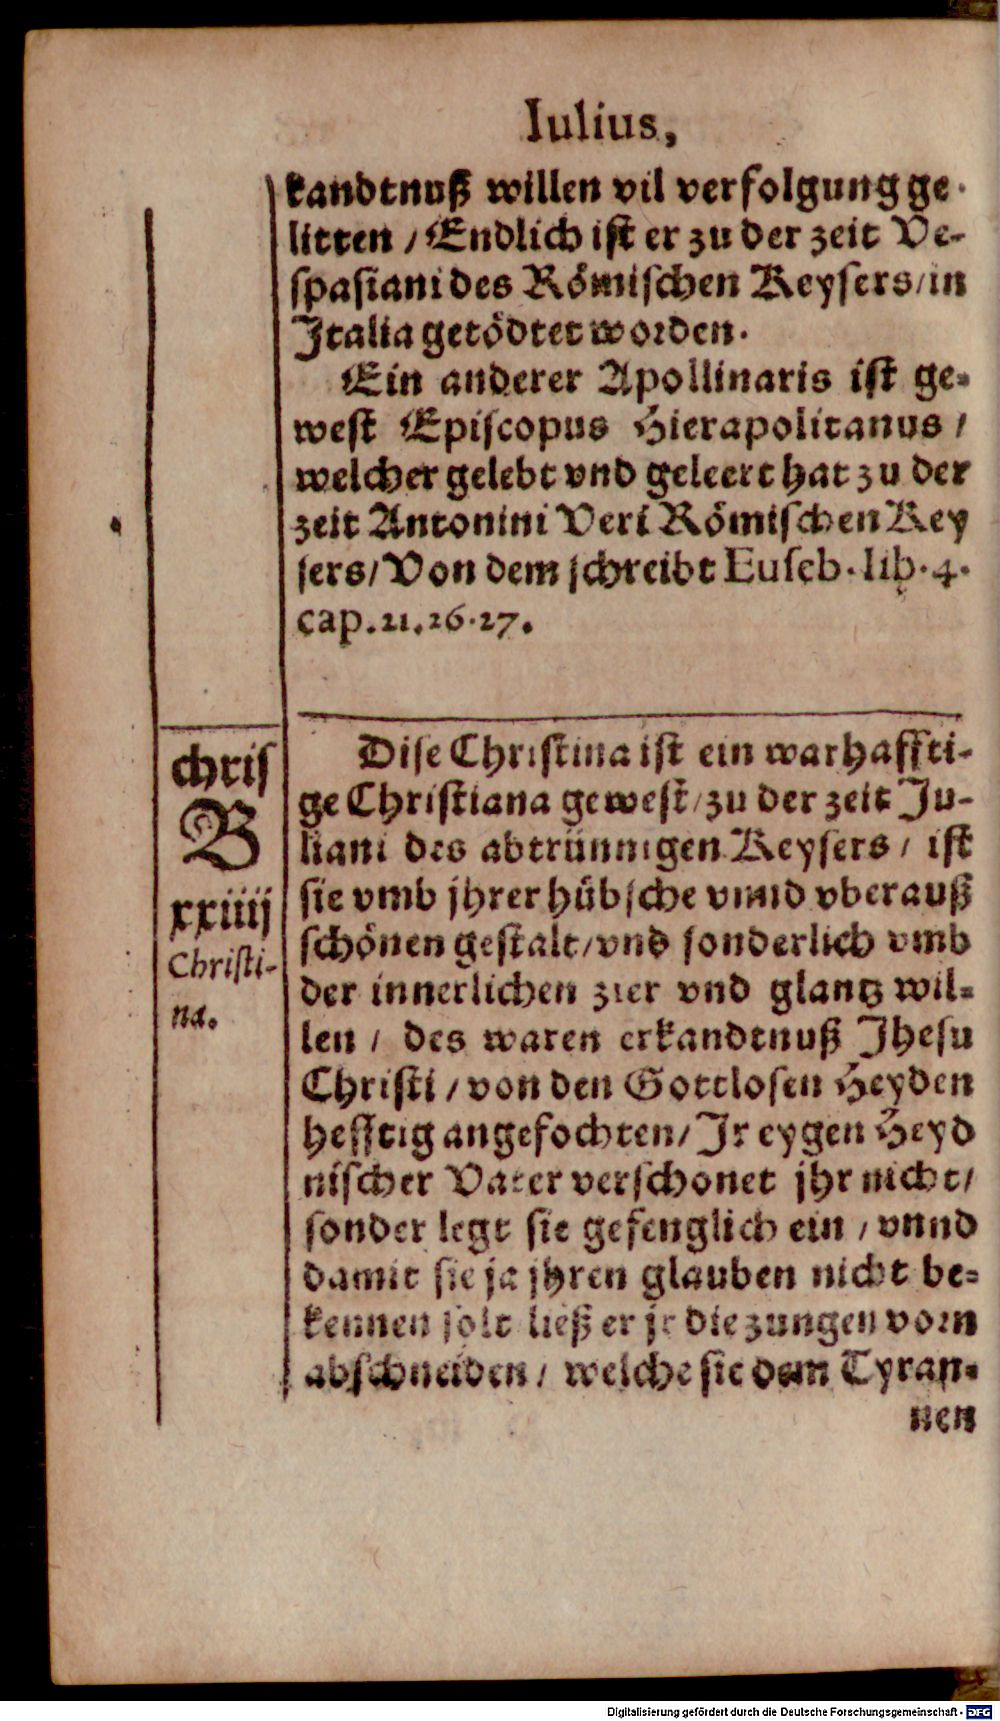 Iulius,
kandtnuß willen vil verfolgung ge-
litten / Endlich ist er zu der zeit Ve-
spasiani des Römischen Keysers/in
Italia getödtet worden.
Ein anderer Apollinaris ist ge-
west Episcopus Hierapolitanus /
welcher gelebt vnd geleert hat zu der
zeit Antonini Veri Römischen Key
sers/Von dem schreibt Euseb. lib. 4.
cap. 21. 26. 27.
chris
B
xxiiij
Christi-
na.
Dise Christina ist ein warhaffti-
ge Christiana gewest/zu der zeit Ju-
liani des abtrünnigen Keysers / ist
sie vmb jhrer hübsche vnnd vberauß
schönen gestalt/vnd sonderlich vmb
der innerlichen zier vnd glantz wil-
len / des waren erkandtnuß Jhesu
Christi / von den Gottlosen Heyden
hefftig angefochten/Ir eygen Heyd
nischer Vater verschonet jhr nicht/
sonder legt sie gefenglich ein / vnnd
damit sie ja jhren glauben nicht be-
kennen solt ließ er jr die zungen vorn
abschneiden / welche sie dem Tyran-
nen
Digitalisierung gefördert durch die Deutsche Forschungsgemeinschaft - DFG